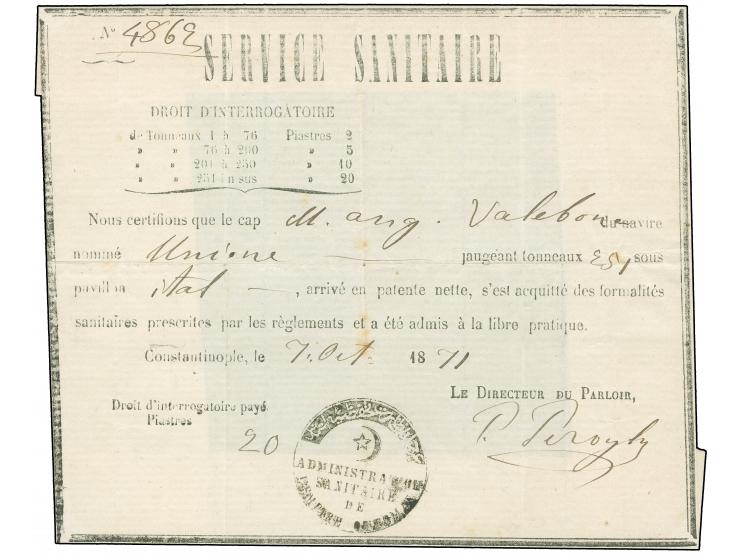 No 4862
SERVICE SANITAIRE
DROIT D'INTERROGATOIRE
de Tonneaux 1 à 76 Piastres 2
» » 76 à 200 » 5
» » 201 à 250 » 10
» » 251 en sus » 20
Nous certifions que le cap M. ang. Valebone du navire
nommé Unione jaugeant tonneaux 251 sous
pavillon ital, arrivé en patente nette, s'est acquitté des formalités
sanitaires prescrites par les règlements et a été admis à la libre pratique.
Constantinople, le 7. Oct 1871
LE DIRECTEUR DU PARLOIR,
Droit d'interrogatoire payé
Piastres 20
ADMINISTRATION
SANITAIRE
DE